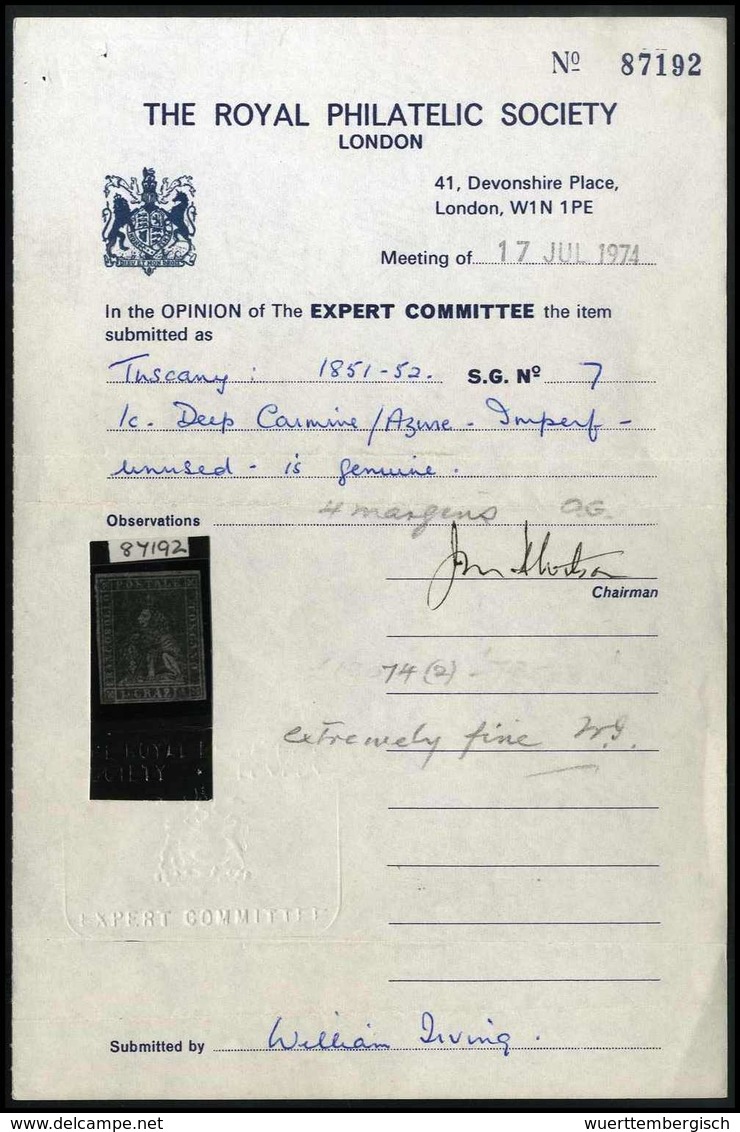 Nº 87192
THE ROYAL PHILATELIC SOCIETY
LONDON
41, Devonshire Place,
London, W1N 1PE
DIEU ET MON DROIT
Meeting of 17 JUL 1974
In the OPINION of The EXPERT COMMITTEE the item
submitted as
Tuscany: 1851-52. S.G. Nº 7
1c. Deep Carmine/Azure - Imperf -
unused - is genuine.
Observations 4 margins O.G.
87192
Chairman
POSTALE
74(2) -
extremely fine W.I.
EXPERT COMMITTEE
Submitted by William Irving.
wuerttembergisch